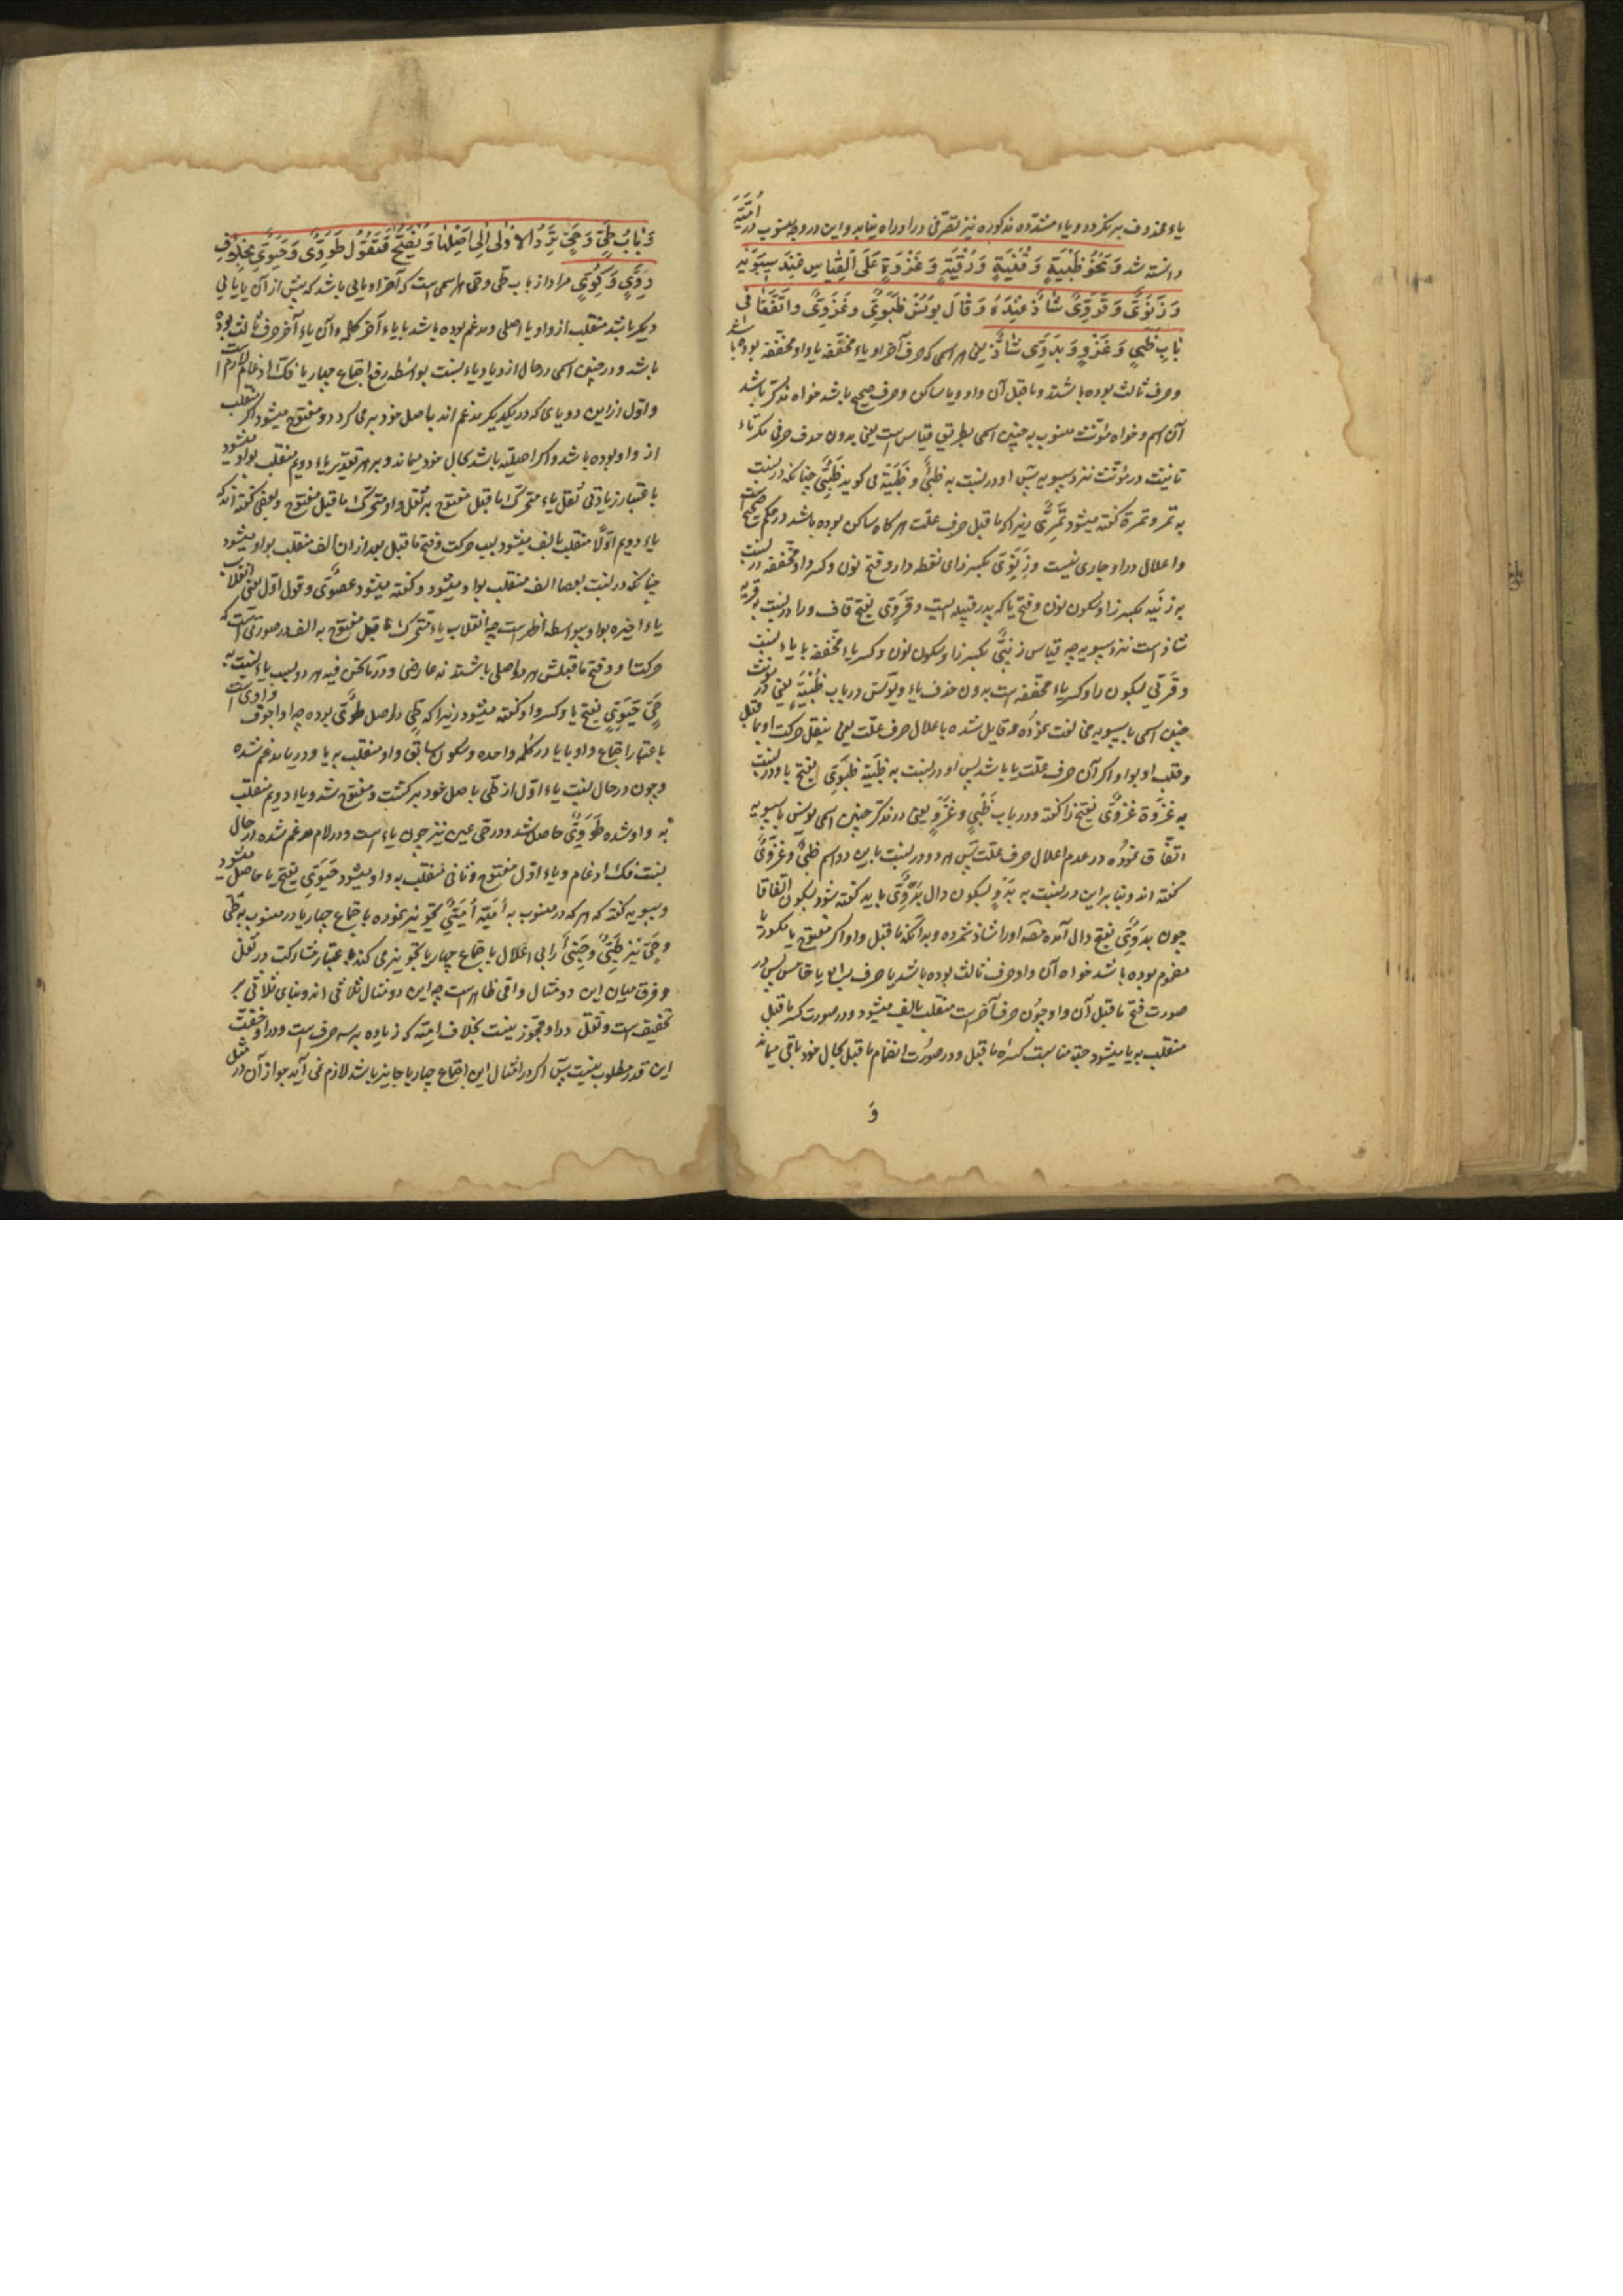 یاء محذوف بر نکردد و یاء مشدده مذکوره نیز تصرفی در او راه نیابد و این در منسوب امیّة
دانسته شد وَ نَحْوُ ظَبْیَةٍ وَ قُنْیَةٍ وَ رُقْیَةٍ وَ غَزْوَةٍ عَلَی الْقِیَاسِ عِنْدَ سِیبَوَیْهِ
وَ زِنَوِیٌّ وَ قَرَوِیٌّ شَاذٌّ عِنْدَهُ وَ قَالَ یُونُسُ ظَبَوِیٌّ وَ غَزَوِیٌّ وَ اتَّفَقَا فی
بَابِ ظَبْیٍ وَ غَزْوٍ وَ بَدَوِیٌّ شَاذٌّ یعنی هر اسمی که حرف آخر او یاء مخففه یا واو مخففه بوده باشد
و حرف ثالث بوده باشند و ماقبل آن واو و یا ساکن و حرف صحیح باشد خواه مذکر باشد
آن اسم و خواه مؤنث منسوب به چنین اسمی بطریق قیاس است یعنی بدون حذف حرفی مکر تاء
تانیث در مؤنث نزد سیبویه پس او در نسبت به ظبی و ظَبْیَة می کوید ظَبْیِیّ چنانکه در نسبت
به تمر و تمرة کفته میشود تَمْرِیّ زیرا که ماقبل حرف علت هر کاه ساکن بوده باشد در حکم صحیح است
و اعلال در او جاری نیست و زِنَوِیّ بکسر زای نقطه دار و فتح نون و کسر واو مخففه در نسبت
به زنیه بکسر زا و سکون نون و فتح یا که پدر قبیله ایست و قَرَوِیّ بفتح قاف و را در نسبت به قریه
شاذ است نزد سیبویه چه قیاس زِنْیِیّ بکسر زا و سکون نون و کسر یاء مخففه با یاء نسبت
و قَرْیِیّ بسکون را و کسر یاء مخففه است بدون حذف یاء و یونس در باب ظَبْیَةٍ یعنی در مؤنث
چنین اسمی با سیبویه مخالفت نموده و قایل شده باعلال حرف علت یعنی بنقل حرکت او بماقبل
و قلب او بواو اکر آن حرف علت یا باشد پس او در نسبت به ظَبْیَة ظَبَوِیّ بفتح با و در نسبت
به غَزْوَة غَزَوِیّ بفتح زا کفته و در باب ظَبْیٍ و غَزْوٍ یعنی در مذکر چنین اسمی یونس با سیبویه
اتفاق نموده در عدم اعلال حرف علت پس هر دو در نسبت باین دو اسم ظَبْیِیّ و غَزْوِیّ
کفته اند و بنا براین در نسبت به بَدْو بسکون دال بَدْوِیّ باید کفته شود بسکون اتفاقا
چون بدَوِیّ بفتح دال آمده مصه او را شاذ شمرده و بدانکه ماقبل واو اکر مفتوح یا مکسور یا
مضموم بوده باشد خواه آن واو حرف ثالث بوده باشد یا حرف رابع یا خامس پس در
صورت فتح ماقبل آن واو چون حرف آخر است منقلب بالف میشود و در صورت کسر ماقبل
منقلب به یا میشود جهة مناسبت کسره ماقبل و در صورت انضمام ماقبل بحال خود باقی میماند
وَ
وَ بَابُ طَیٍّ وَ حَیٍّ تُرَدُّ الاُولی اِلی اَصْلِهَا وَ تُفْتَحُ فَتَقُولُ طَوَوِیٌّ وَ حَیَوِیٌّ بِخِلَافِ
دَوِّیٍّ وَ کَوِّیٍّ مراد از باب طی و حی هر اسمی است که آخر او یایی باشد که پیش از آن یا یایی
دیکر باشد منقلب از واو یا اصلی و مدغم بوده باشد با یاء آخر کلمه و آن یاء آخر حرف ثالث بوده
باشد و در چنین اسمی در حال ازدیاد یاء نسبت بواسطه رفع اجتماع چهار یا فک ادغام لازم است
و اول از این دو یای که در یکدیکر مدغم اند باصل خود بر می کردد و مفتوح میشود اکر منقلب
از واو بوده باشد و اکر اصلیه باشد بحال خود میماند و بر هر تقدیر یاء دویم منقلب بواو میشود
باعتبار زیادتی ثقل یاء متحرک ماقبل مفتوح بر ثقل واو متحرک ماقبل مفتوح و بعضی کفته اند که
یاء دویم اولا منقلب بالف میشود بسبب حرکت و فتح ماقبل بعد از ان الف منقلب بواو میشود
چنانکه در نسبت بعصا الف منقلب بواو میشود و کفته میشود عصَوِیّ و قول اول یعنی انقلاب
یاء اخیره بواو بیواسطه اظهر است چه انقلاب یاء متحرک ماقبل مفتوح به الف در صورتی است که
حرکت او و فتح ماقبلش هر دو اصلی باشند نه عارضی و در مانحن فیه هر دو بسبب یاء نسبت به
حَیّ حَیَوِیّ بفتح یا و کسر واو کفته میشود زیرا که طَیّ در اصل طَوْی بوده چه او اجوف واوی است
باعتبار اجتماع واو با یا در کلمه واحده و سکون سابق واو منقلب به یا و در یا مدغم شده
و چون در حال نسبت یاء اول از طی باصل خود بر کشت و مفتوح شد و یاء دویم منقلب
به واو شده طَوَوِیّ حاصل شد و در حی عین نیز چون یاء است و در لام مدغم شده در حال
نسبت فک ادغام و یاء اول مفتوح و ثانی منقلب به واو میشود حَیَوِیّ بفتح یا حاصل میشود
و سیبویه کفته که هر که در منسوب به اُمَیَّة اُمَیِّیّ تجویز نموده باجتماع چهار یا در منسوب به طَیّ
و حَیّ نیز طَیِّیّ و حَیِّیّ را بی اعلال باجتماع چهار یا تجویز می کند باعتبار مشارکت در ثقل
و فرق میان این دو مثال واقعی ظاهر است چه این دو مثال ثلاثی اند و بنای ثلاثی بر
تخفیف است و ثقل در او مجوز نیست بخلاف امیّة که زیاده بر سه حرف است و در او خفّت
این قدر مطلوب نیست پس اکر در امثال این اجتماع چهار یا جایز باشد لازم نمی آید جواز آن در مثل